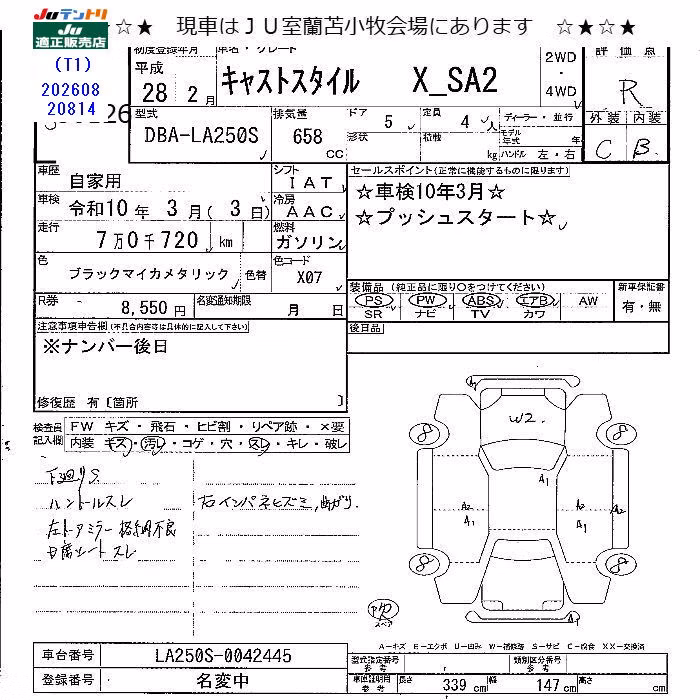 JUテントリ
JU
適正販売店
☆★ 現車はJU室蘭苫小牧会場にあります ☆★☆★
(T1)
202608
20814
初度登録年月
平成
28 年 2 月
車名・グレード
キャストスタイル X_SA2
2WD
・
4WD
評価点
R
外装 内装
C B
型式
DBA-LA250S
排気量
658
CC
ドア 5
形状
定員 4 人
積載 kg
ディーラー・並行
モデル年式 年
ハンドル 左・右
車歴 自家用
シフト IAT
車検 令和10年 3月(3日)
冷房 AAC
走行 7万0千720 km
燃料 ガソリン
色 ブラックマイカメタリック 色替
色コード X07
R券 8,550円
名変通知期限 月 日
セールスポイント(正常に機能するものに限ります)
☆車検10年3月☆
☆プッシュスタート☆
装備品(純正品に限り○をつけてください)
PS PW ABS エアB AW
SR ナビ TV カワ
新車保証書
有・無
後日品
注意事項申告欄(不具合内容等は具体的に記入して下さい)
※ナンバー後日
修復歴 有〔箇所 〕
検査員記入欄
FW キズ・飛石・ヒビ割・リペア跡・×要
内装 キズ・汚レ・コゲ・穴・スレ・キレ・破レ
下廻りS
ハンドルスレ
左ドアミラー格納不良
右インパネヒズミ,曲がり.
A2
W2.
8 8
A1
A2 A2
A1 A1
8 8
A1
スペア
A-キズ E-エクボ U-凹み W-補修跡 S-サビ C-腐食 XX-交換済
車台番号 LA250S-0042445
登録番号 名変中
型式指定番号
参考
類別区分番号
参考
車庫証明用
参考
長さ 339 cm
幅 147 cm
高さ cm